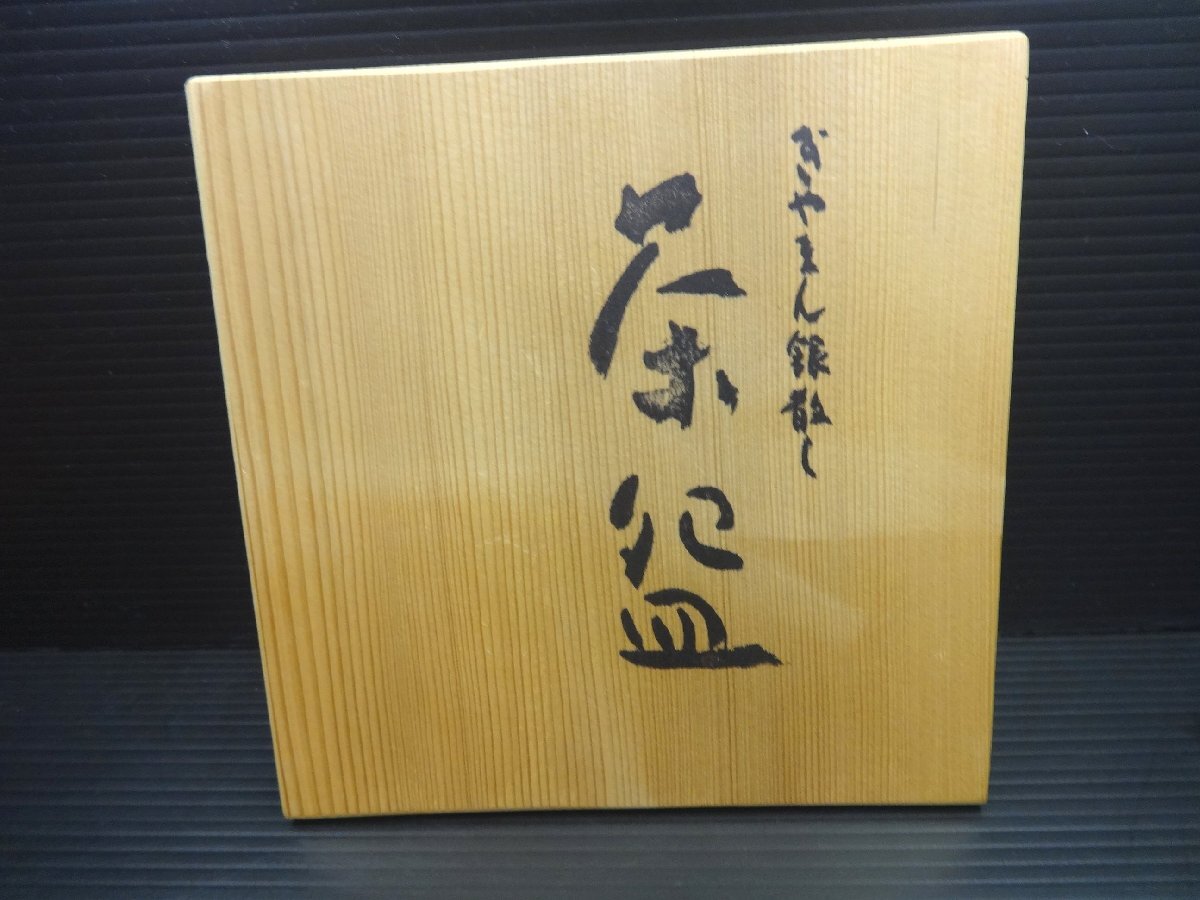 ぎやまん銀散し
茶碗皿